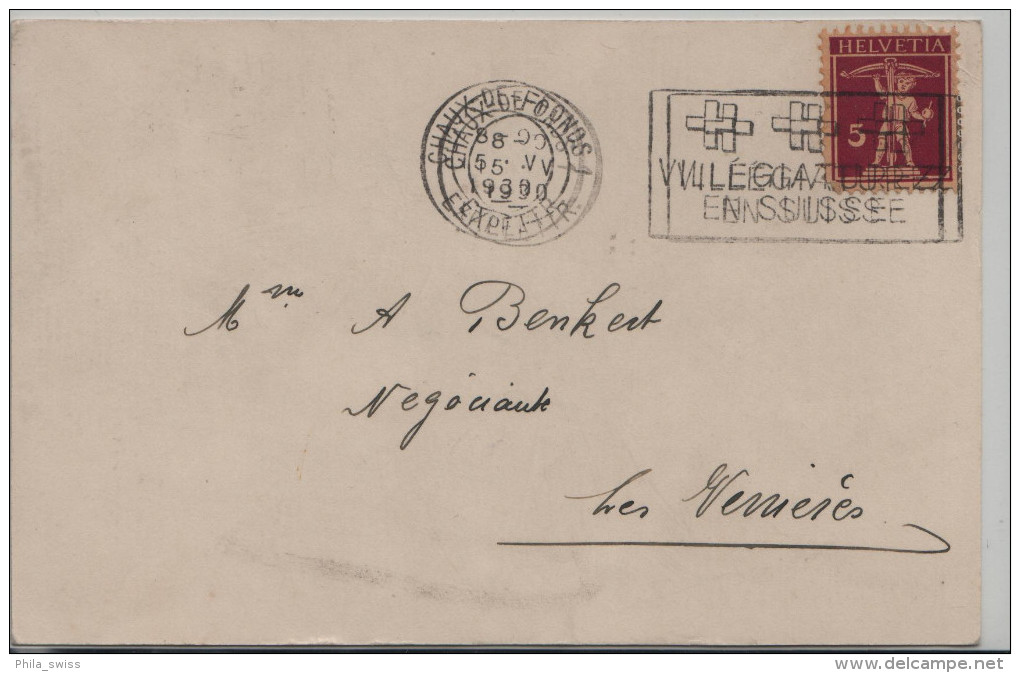 HELVETIA
5
CHAUX-DE-FONDS 1
8-90
5. V
1930
EXP. LETTR.
VILLÉGIATUREZ
EN SUISSE
Mme A Benkert
Négociante
Les Verrières
Phila_swiss
www.delcampe.net